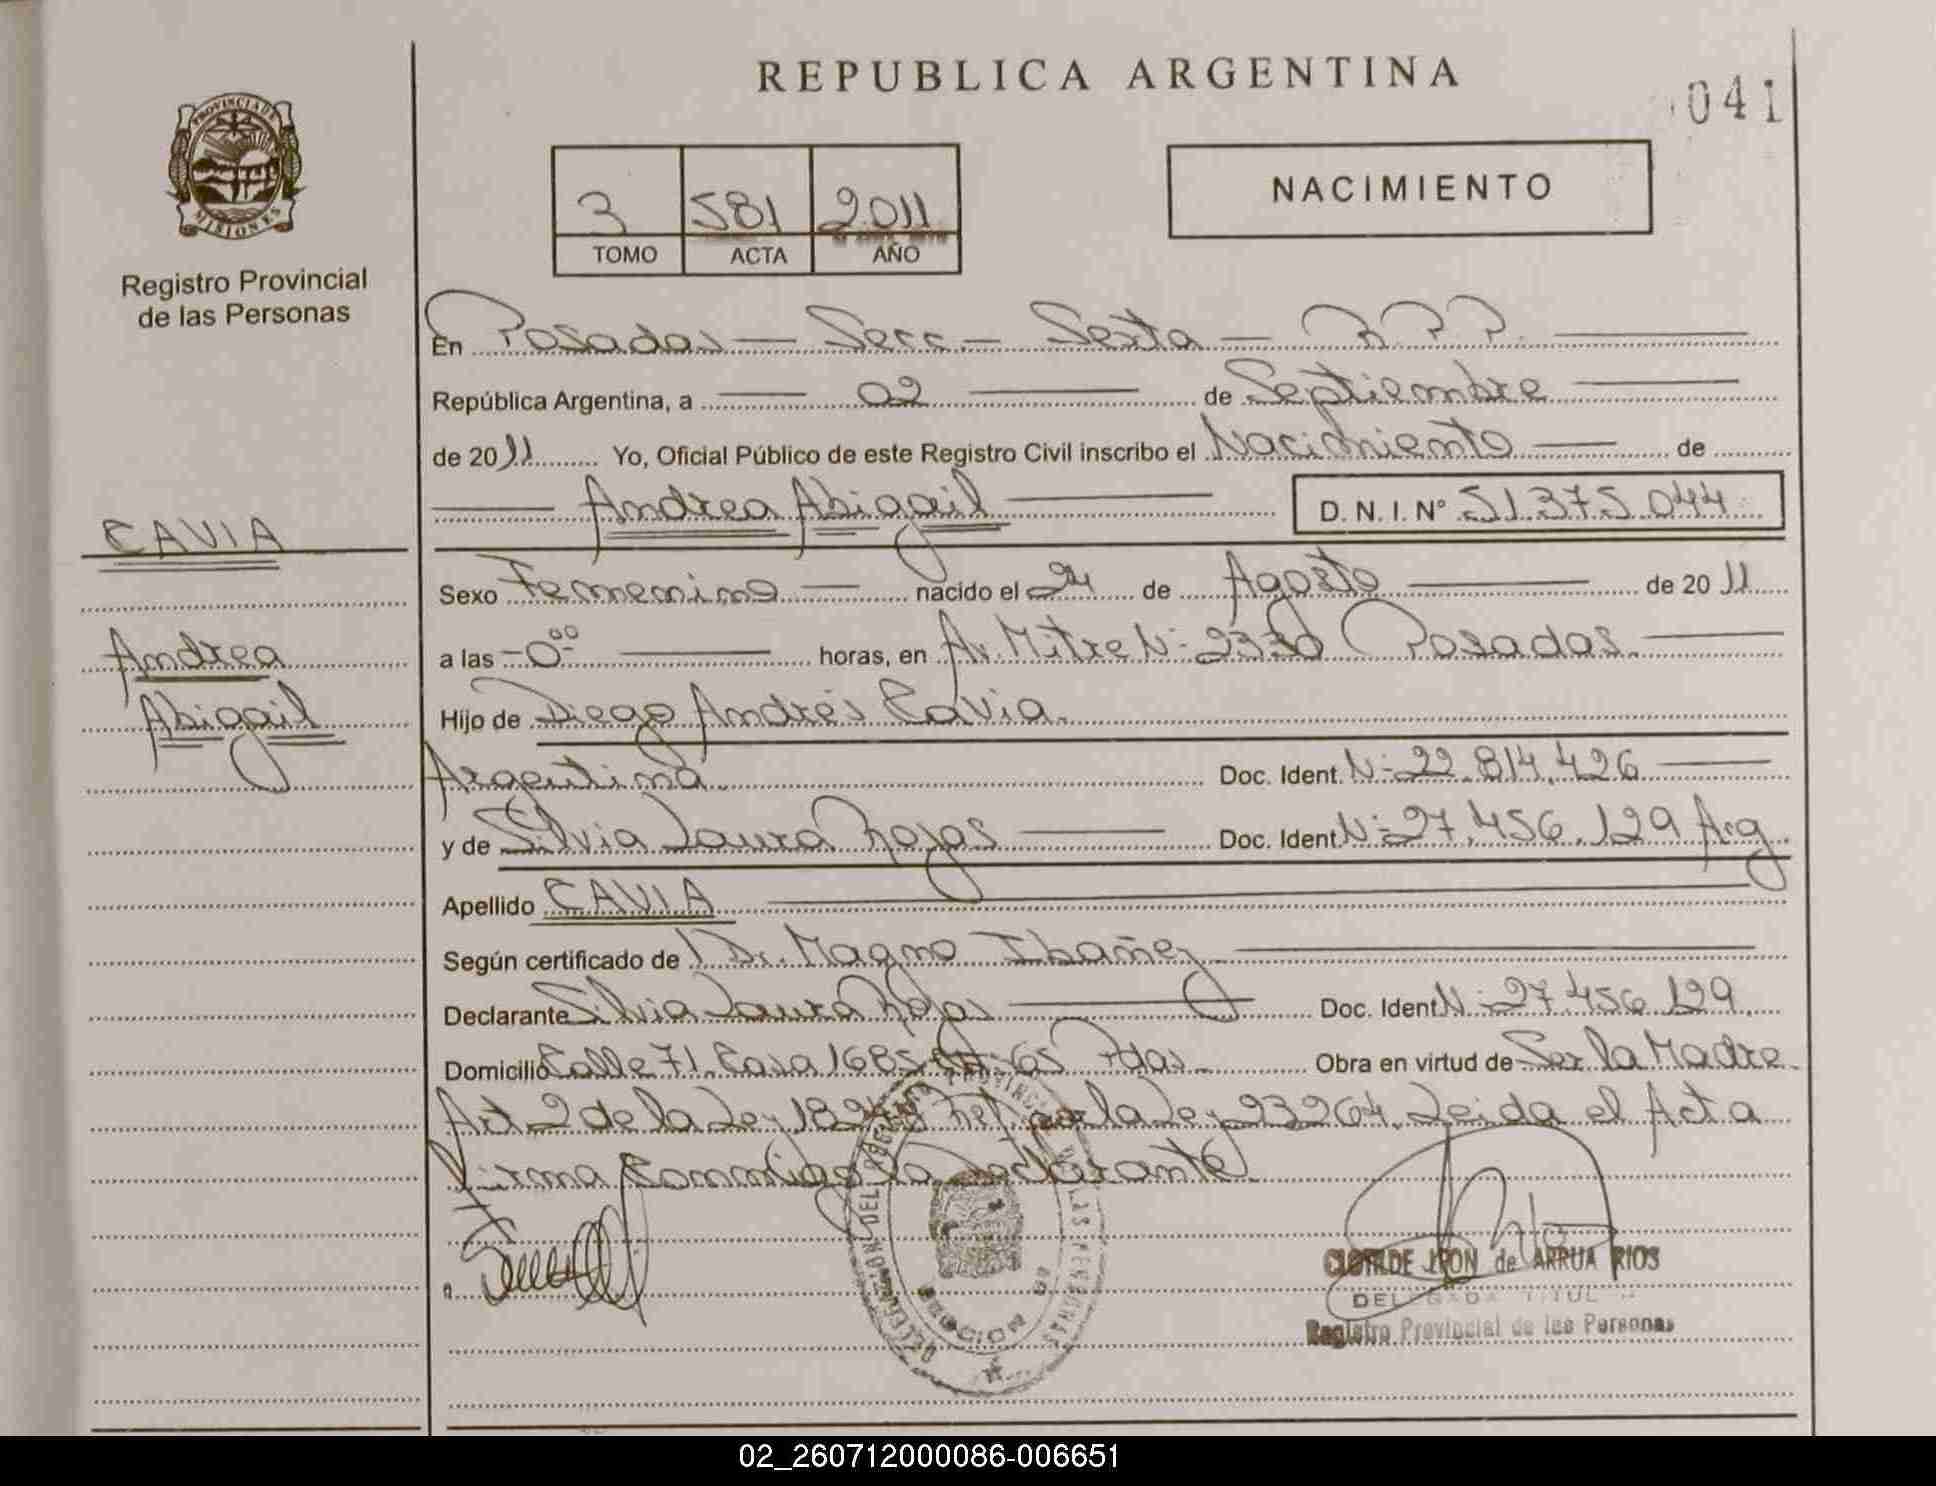 REPUBLICA ARGENTINA
041
PROVINCIA DE
MISIONES
Registro Provincial
de las Personas
3 581 2011
TOMO ACTA AÑO
NACIMIENTO
En Posadas — Secc — Sexta — R.P.P.
República Argentina, a 02 de Septiembre
de 2011 Yo, Oficial Público de este Registro Civil inscribo el Nacimiento de
Andrea Abigail D. N. I. Nº 51.375.044
CAVIA
Andrea
Abigail
Sexo Femenino nacido el 24 de Agosto de 2011
a las -0:00 horas, en Av. Mitre Nº 2330 Posadas.
Hijo de Diego Andrés Cavia.
Argentina Doc. Ident. Nº 22.814.426
y de Silvia Laura Rojas Doc. Ident. Nº 27.456.129 Arg
Apellido CAVIA
Según certificado de Dr. Magno Ibañez
Declarante Silvia Laura Rojas Doc. Ident. Nº 27.456.129.
Domicilio Calle 71 Casa 1685 65 Pdas. Obra en virtud de Ser la Madre
Art 2 de la Ley 18248 Ref. por la Ley 23264. Leida el Acta
Firma Conmigo la declarante
CLOTILDE de ARRUA RIOS
DELEGADA TITULAR
Registro Provincial de las Personas
02_260712000086-006651